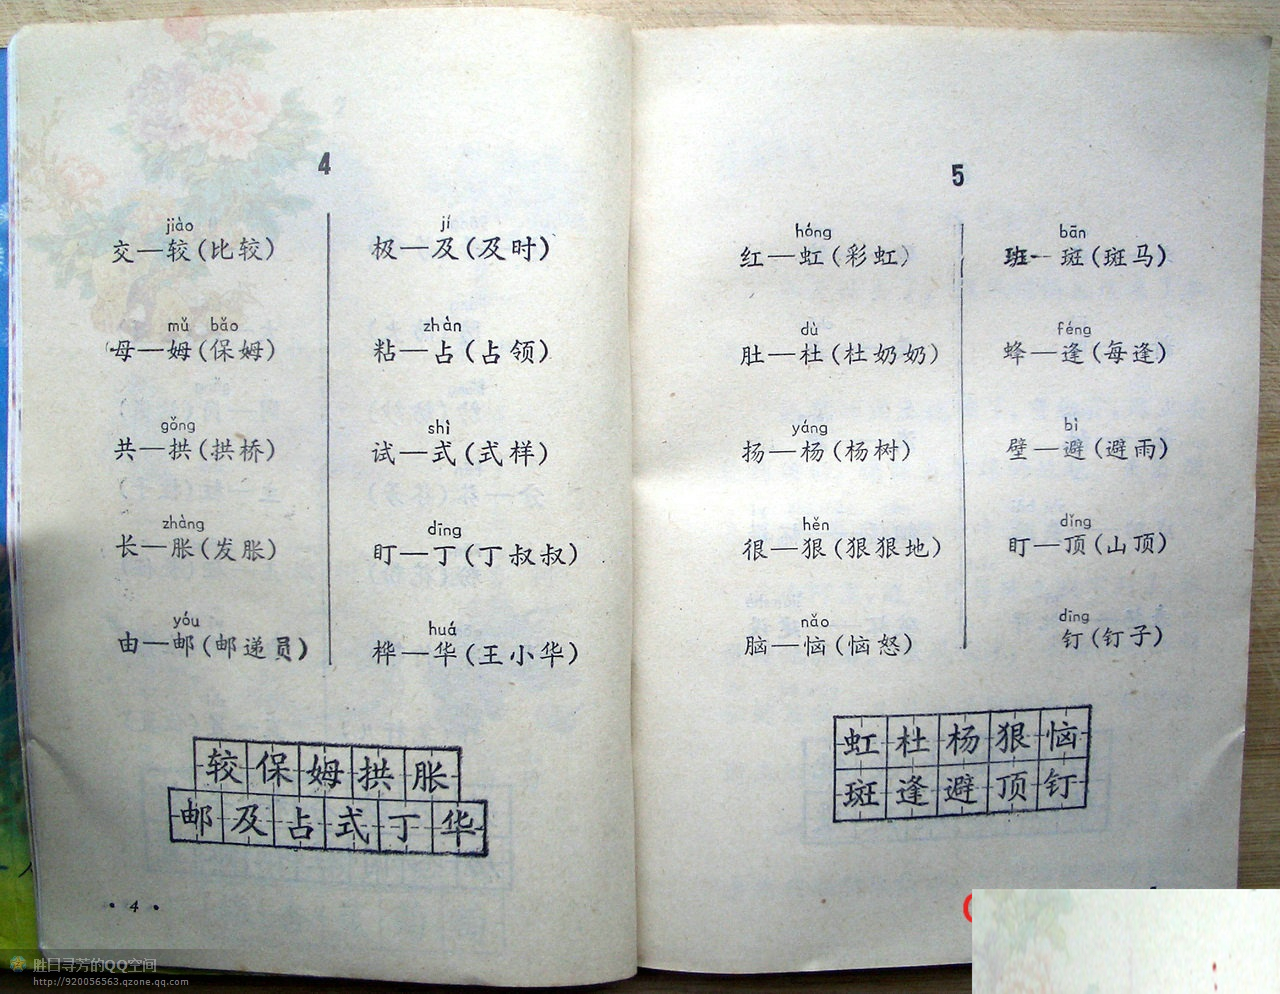 4
jiào
交—较(比较)
mǔ bǎo
母—姆(保姆)
gǒng
共—拱(拱桥)
zhàng
长—胀(发胀)
yóu
由—邮(邮递员)
jí
极—及(及时)
zhàn
粘—占(占领)
shì
试—式(式样)
dīng
盯—丁(丁叔叔)
huá
桦—华(王小华)
较保姆拱胀
邮及占式丁华
·4·
5
hóng
红—虹(彩虹)
dù
肚—杜(杜奶奶)
yáng
扬—杨(杨树)
hěn
很—狠(狠狠地)
nǎo
脑—恼(恼怒)
bān
班—斑(斑马)
féng
蜂—逢(每逢)
bì
壁—避(避雨)
dǐng
盯—顶(山顶)
dīng
钉(钉子)
虹杜杨狠恼
斑逢避顶钉
胜日寻芳的QQ空间
http://920056563.qzone.qq.com